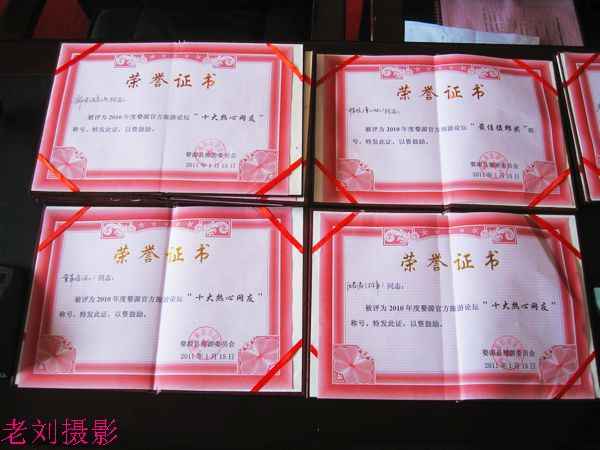 荣誉证书
同志:
被评为2010年度婺源官方旅游论坛"十大热心网友"
称号,特发此证,以资鼓励。
婺源县旅游委员会
2011年1月15日
荣誉证书
同志:
被评为2010年度婺源官方旅游论坛"最佳组织奖"称
号,特发此证,以资鼓励。
婺源县旅游委员会
2011年1月15日
荣誉证书
同志:
被评为2010年度婺源官方旅游论坛"十大热心网友"
称号,特发此证,以资鼓励。
婺源县旅游委员会
2011年1月15日
荣誉证书
同志:
被评为2010年度婺源官方旅游论坛"十大热心网友"
称号,特发此证,以资鼓励。
婺源县旅游委员会
2011年1月15日
老刘摄影